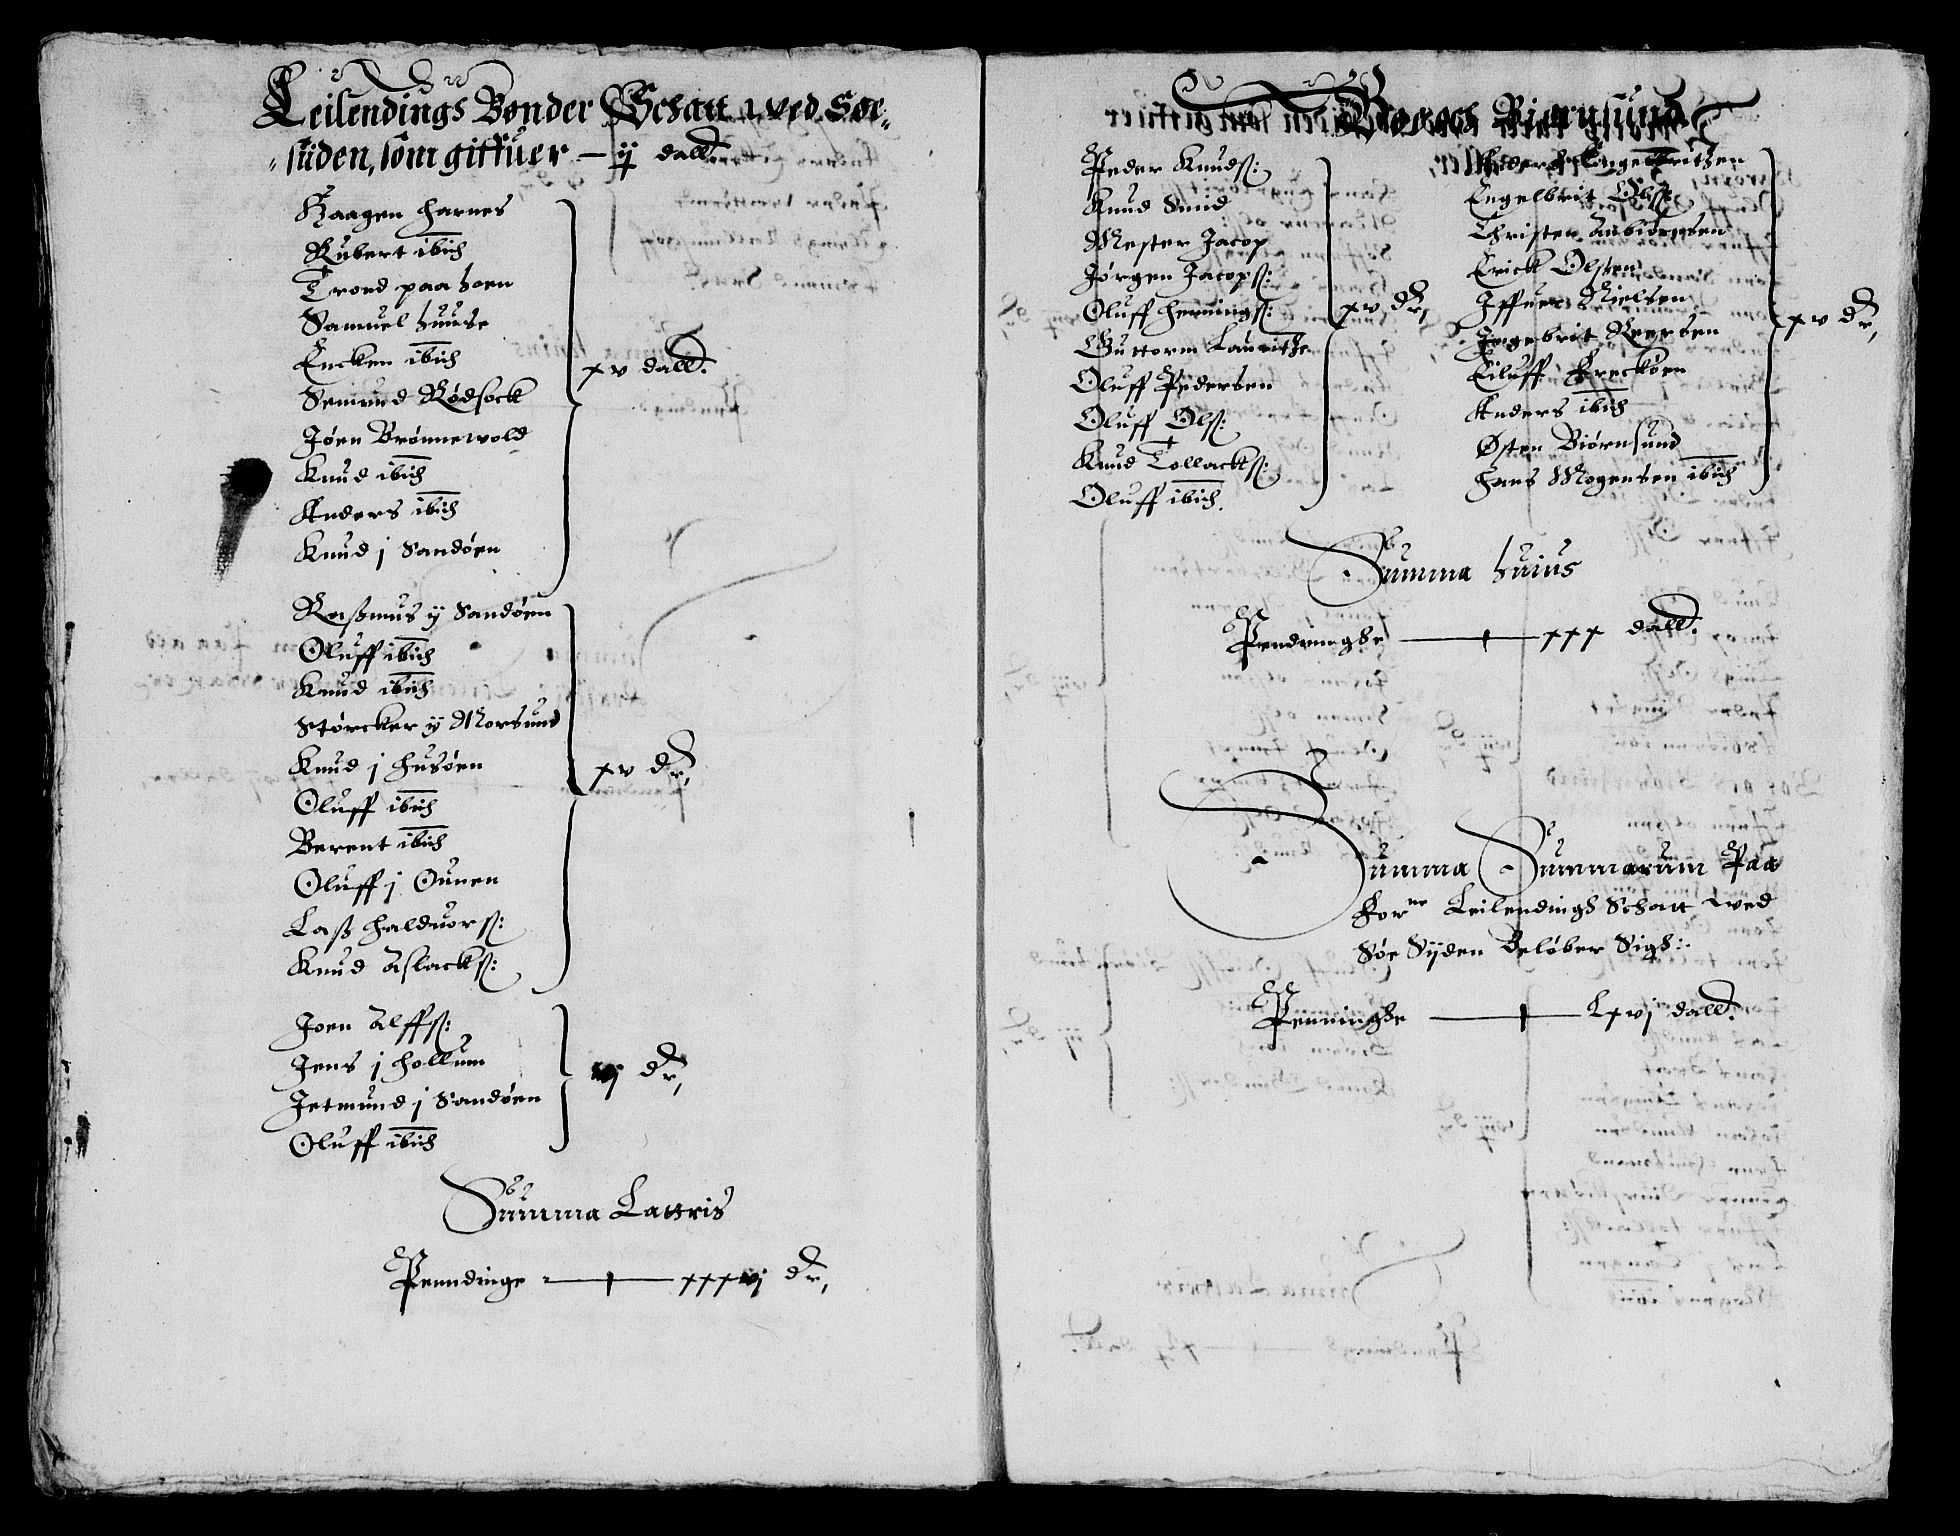 Leilendings Bønder Schatt wed Søe-
süden, som giffuer — ij dall.
Haagen Harnes
Rubert ibid
Trond paa hoen
Samuel huuse
Encken ibid
Semund Rødsock
Jøen Brønnewold
Knud ibid
Anders ibid
Knud j Sandøen
xv dall.
Rasmus ij Sandøen
Oluff ibid
Knud ibid
Størcker ij Morsund
Knud j Husøen
Oluff ibid
Berent ibid
Oluff j Ounen
Lasß Haldvorß:
Knud Aslackß:
xv dr,
Joen Alffß:
Jens j Hollum
Jetmund j Sandøen
Oluff ibid
vj dr,
Summa Lattris
Penndinge — xxxvj dr,
Boe och Biørnsund
Peder Knudß:
Knud Smid
Mester Jacop
Jørgen Jacopß:
Oluff Henningß:
Guttorm Lauritz
Oluff Pedersen
Oluff Olß:
Knud Tollackß:
Oluff ibid.
xv dr,
Peder Engelbritzen
Engelbrit Olß:
Christen Anbiørnsen
Erick Olsten
Iffuer Nielsen
Ingebrit Reersen
Eiluff Freckøen
Anders ibid
Østen Biørnsund
Hans Mogensen ibid
xv dr,
Summa huius
Penndninghe — xxx dall.
Summa Summarum Paa
for.ne Leilendings Schatt wed
Søe Sijden Beløber Sigh:
Penninghe — Lxvj dall.